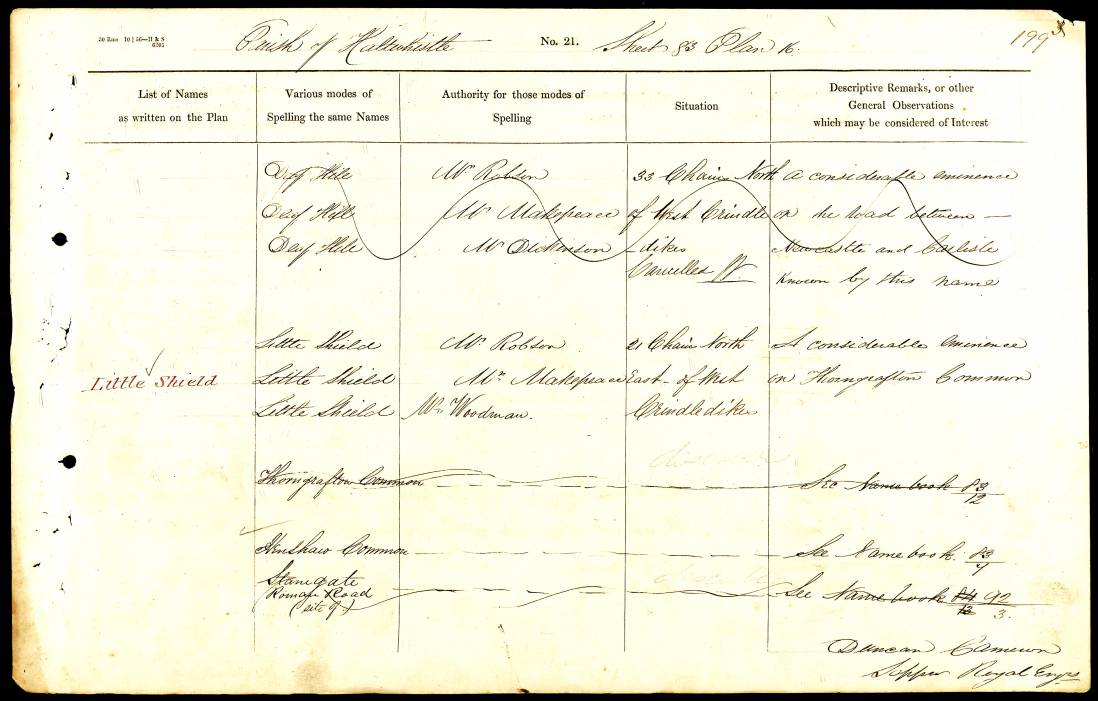 50 Rms 10 | 56—H & S
6205
Parish of Haltwhistle No. 21. Sheet 83 Plan 16. 199
List of Names
as written on the Plan
Various modes of
Spelling the same Names
Authority for those modes of
Spelling
Situation
Descriptive Remarks, or other
General Observations
which may be considered of Interest
Hill Mr Robson 33 Chain North A considerable eminence
Hill Mr Makepeace of West Crindle on the road between —
Hill Mr Dickinson - dikes Newcastle and Carlisle
Cancelled Known by this name
Little Shield Mr Robson 21 Chain North A considerable Eminence
Little Shield Little Shield Mr Makepeace East of West on Thorngrafton Common
Little Shield Mr Woodman. Crindledikes
Thorngrafton Common See Name book 83/12
Henshaw Common See Name book. 83/7
Stanegate
Roman Road See Name book 84/13 92/3.
(site of)
Duncan Cameron
Sapper Royal Engrs